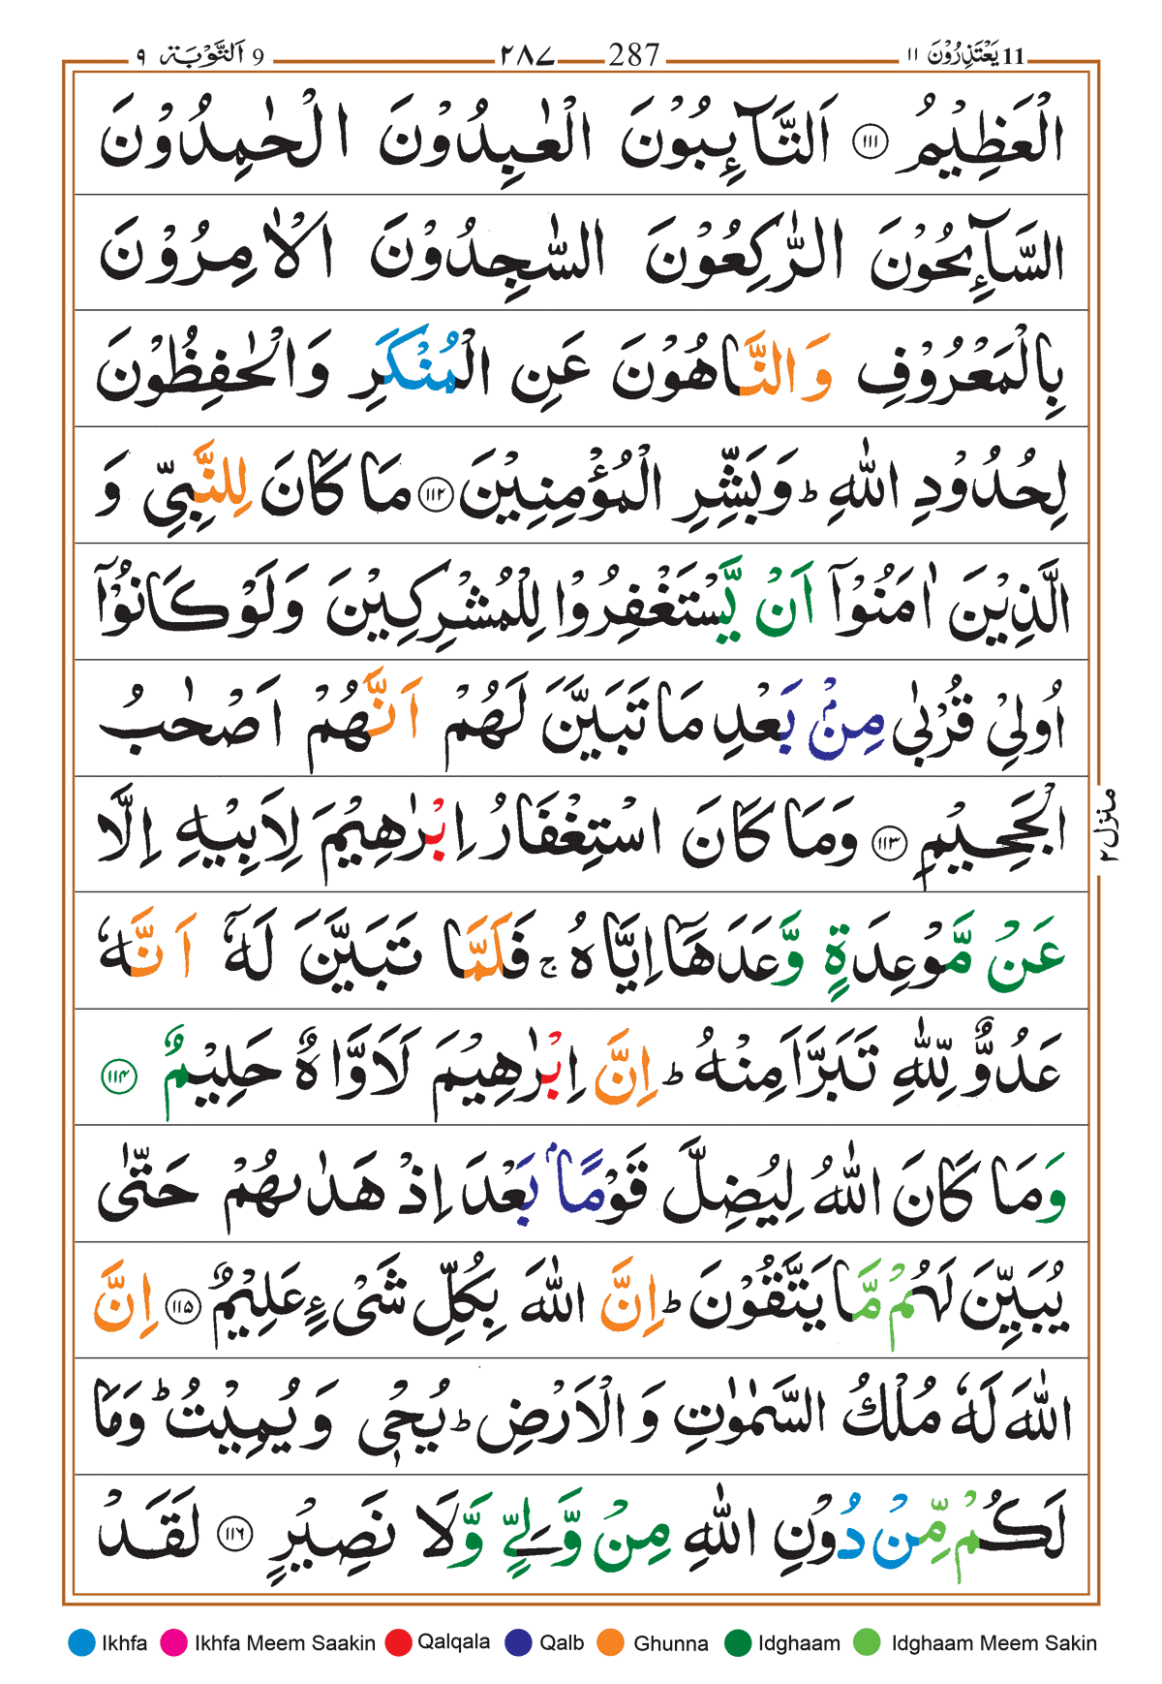 11 يَعْتَذِرُوْنَ ١١ 287 ٢٨٧ 9 اَلتَّوْبَة ٩
الْعَظِيْمُ ١١١ اَلتَّآئِبُوْنَ الْعٰبِدُوْنَ الْحٰمِدُوْنَ
السَّآئِحُوْنَ الرّٰكِعُوْنَ السّٰجِدُوْنَ الْاٰمِرُوْنَ
بِالْمَعْرُوْفِ وَالنَّاهُوْنَ عَنِ الْمُنْكَرِ وَالْحٰفِظُوْنَ
لِحُدُوْدِ اللّٰهِ ؕ وَبَشِّرِ الْمُؤْمِنِيْنَ ١١٢ مَا كَانَ لِلنَّبِيِّ وَ
الَّذِيْنَ اٰمَنُوْۤا اَنْ يَّسْتَغْفِرُوْا لِلْمُشْرِكِيْنَ وَلَوْ كَانُوْۤا
اُولِيْ قُرْبٰى مِنْۢ بَعْدِ مَا تَبَيَّنَ لَهُمْ اَنَّهُمْ اَصْحٰبُ
الْجَحِيْمِ ١١٣ وَمَا كَانَ اسْتِغْفَارُ اِبْرٰهِيْمَ لِاَبِيْهِ اِلَّا
عَنْ مَّوْعِدَةٍ وَّعَدَهَاۤ اِيَّاهُ ۚ فَلَمَّا تَبَيَّنَ لَهٗۤ اَنَّهٗ
عَدُوٌّ لِّلّٰهِ تَبَرَّاَ مِنْهُ ؕ اِنَّ اِبْرٰهِيْمَ لَاَوَّاهٌ حَلِيْمٌ ١١٤
وَمَا كَانَ اللّٰهُ لِيُضِلَّ قَوْمًۢا بَعْدَ اِذْ هَدٰىهُمْ حَتّٰى
يُبَيِّنَ لَهُمْ مَّا يَتَّقُوْنَ ؕ اِنَّ اللّٰهَ بِكُلِّ شَيْءٍ عَلِيْمٌ ١١٥ اِنَّ
اللّٰهَ لَهٗ مُلْكُ السَّمٰوٰتِ وَالْاَرْضِ ؕ يُحْيٖ وَيُمِيْتُ ؕ وَمَا
لَكُمْ مِّنْ دُوْنِ اللّٰهِ مِنْ وَّلِيٍّ وَّلَا نَصِيْرٍ ١١٦ لَقَدْ
منزل ٢
Ikhfa Ikhfa Meem Saakin Qalqala Qalb Ghunna Idghaam Idghaam Meem Sakin